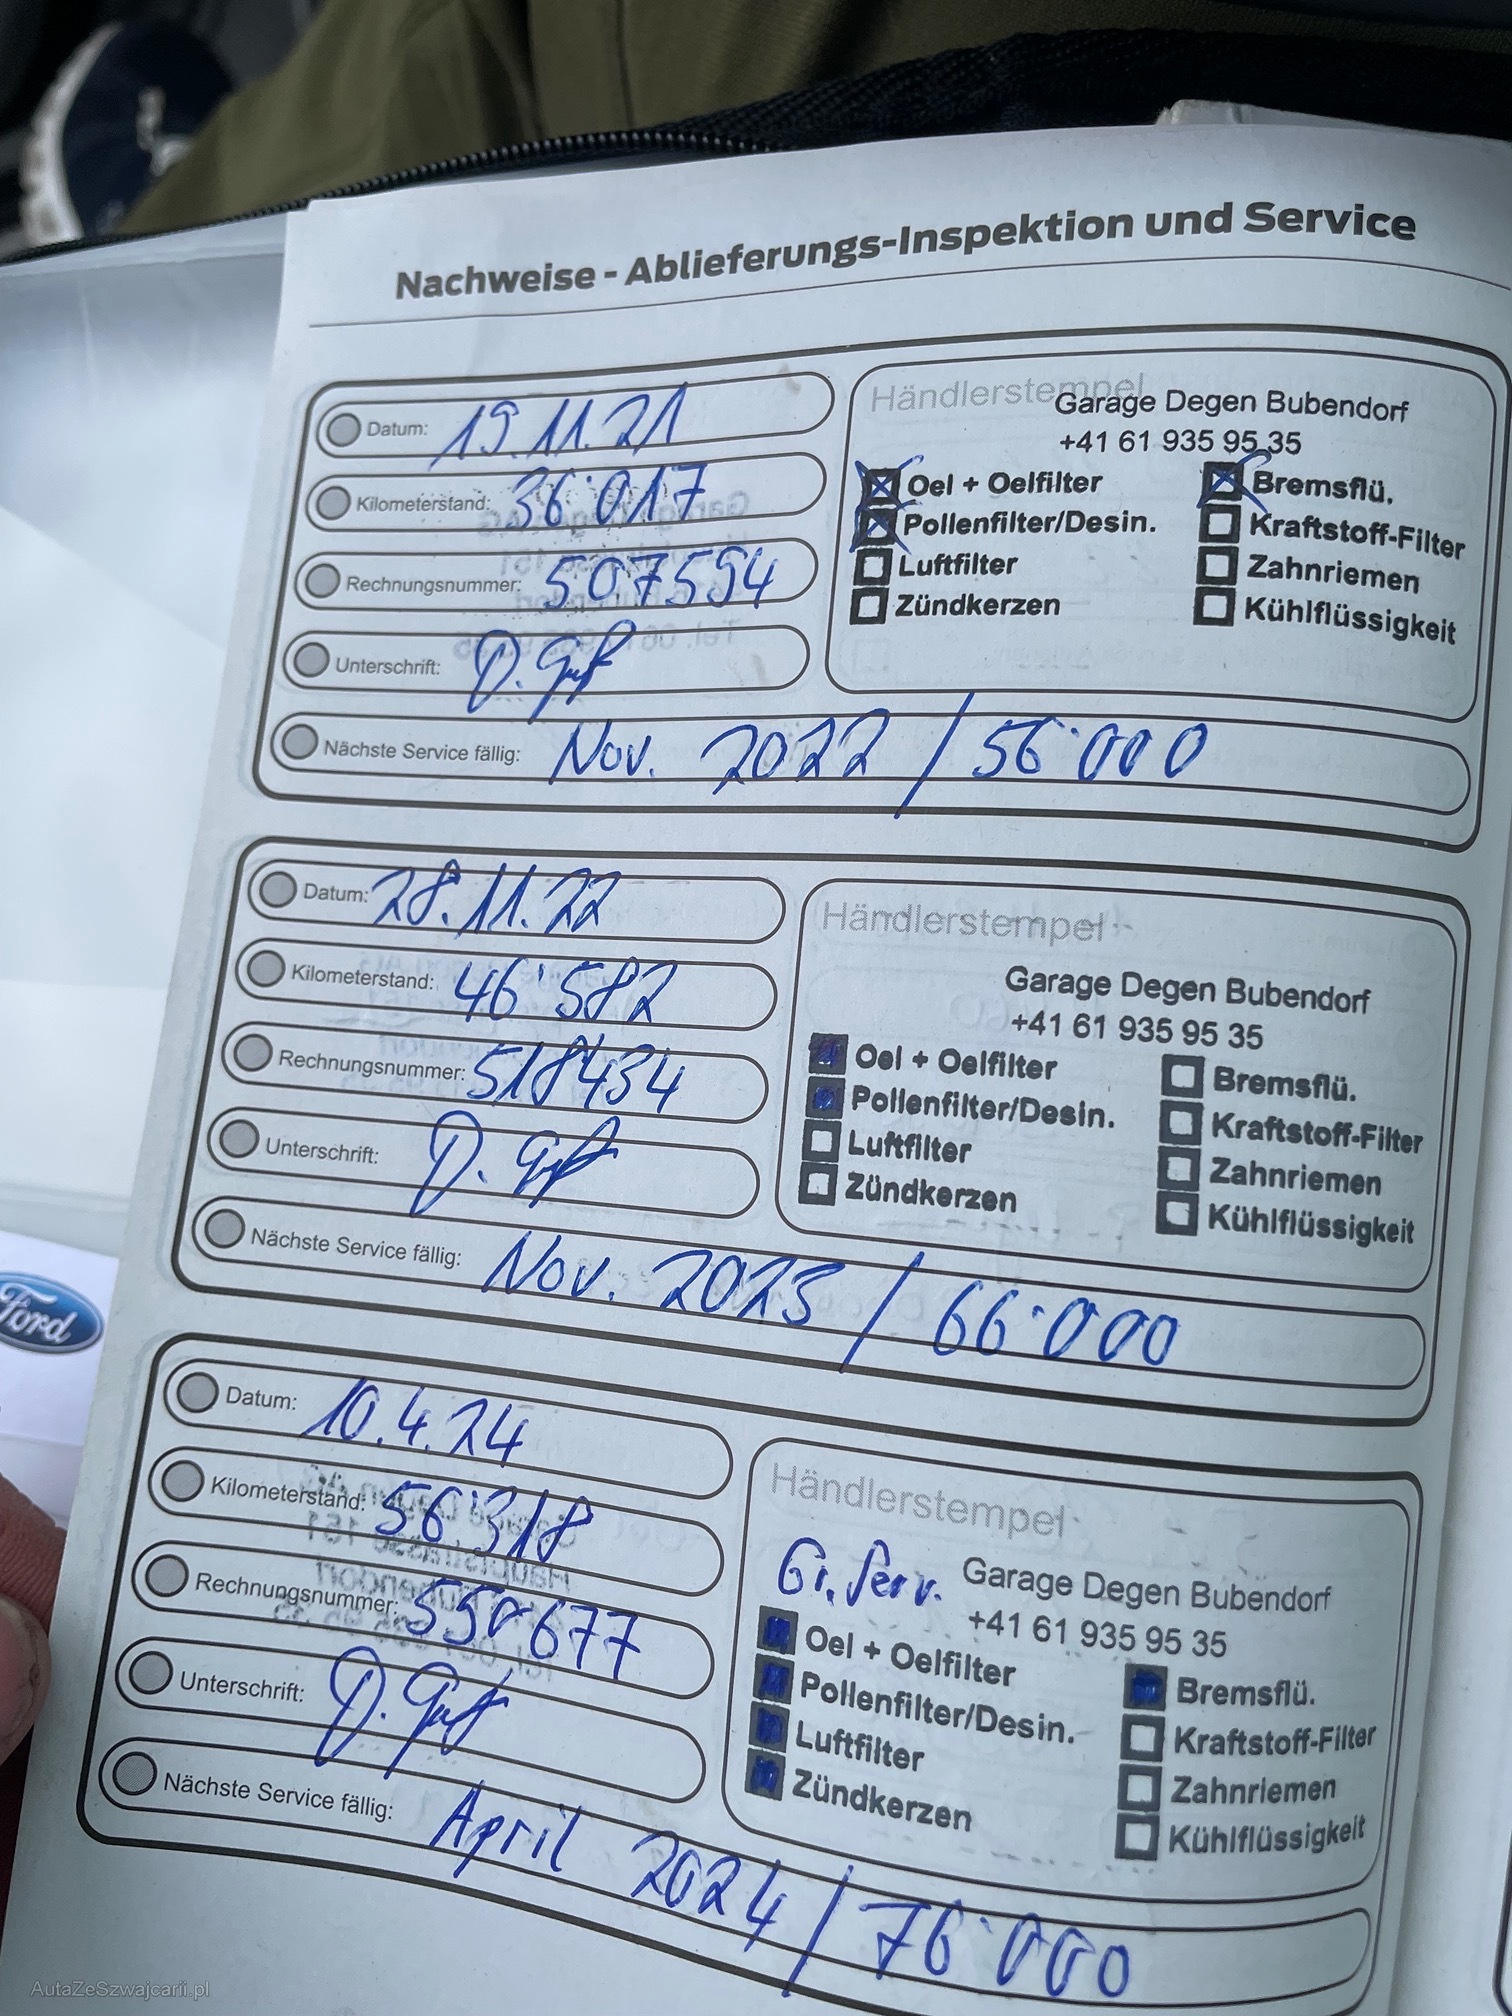 Nachweise - Ablieferungs-Inspektion und Service
Datum: 19.11.21
Kilometerstand: 36'017
Rechnungsnummer: 507594
Unterschrift:
Händlerstempel
Garage Degen Bubendorf
+41 61 935 95 35
Oel + Oelfilter Bremsflü.
Pollenfilter/Desin. Kraftstoff-Filter
Luftfilter Zahnriemen
Zündkerzen Kühlflüssigkeit
Nächste Service fällig: Nov. 2022 / 56'000
Datum: 28.11.22
Kilometerstand: 46'582
Rechnungsnummer: 518434
Unterschrift:
Händlerstempel
Garage Degen Bubendorf
+41 61 935 95 35
Oel + Oelfilter Bremsflü.
Pollenfilter/Desin. Kraftstoff-Filter
Luftfilter Zahnriemen
Zündkerzen Kühlflüssigkeit
Nächste Service fällig: Nov. 2023 / 66'000
Datum: 10.4.24
Kilometerstand: 56'318
Rechnungsnummer: 550677
Unterschrift:
Händlerstempel
Gr. Serv. Garage Degen Bubendorf
+41 61 935 95 35
Oel + Oelfilter Bremsflü.
Pollenfilter/Desin. Kraftstoff-Filter
Luftfilter Zahnriemen
Zündkerzen Kühlflüssigkeit
Nächste Service fällig: April 2024 / 76'000
Ford
AutaZeSzwajcarii.pl